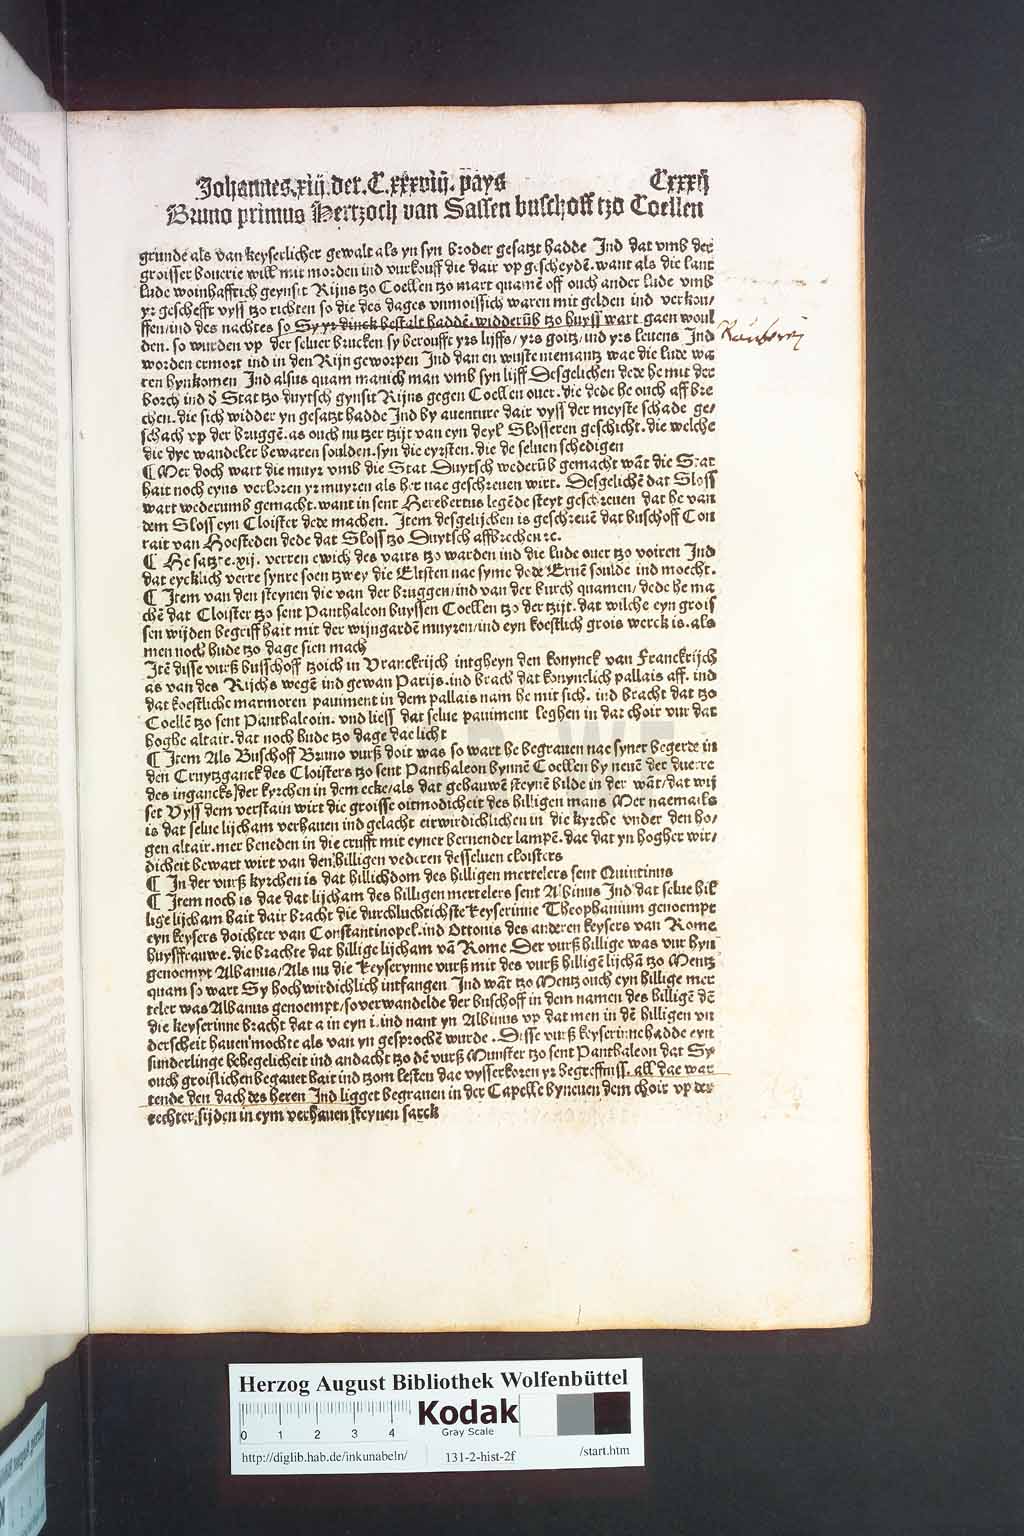 Johannes.xiij.der.C.xxxviij.pays Cxxxij
Bruno primus Hertzoch van Sassen buschoff tzo Coellen
grunde als van keyserlicher gewalt als yn syn broder gesatzt hadde Ind dat vmb der
groisser bouerie will mit morden ind vurkouff die dair vp gescheydē. want als die lant
lude woinhafftich geynsit Rijns tzo Coellen tzo mart quamē off ouch ander lude vmb
yr geschefft vyss tzo richten so die des dages vnmoissich waren mit gelden ind verkou/
ffen/ind des nachtes so Sy yr dinck bestalt haddē. widderūb tzo huyss wart gaen woul
den. so wurden vp der seluer brucken sy beroufft yrs lijffs/ yrs goitz/ ind yrs leuens Ind
worden ermort ind in den Rijn geworpen Ind dan en wuste niemantz wae die lude wa
ren hynkomen Ind alsus quam manich man vmb syn lijff Desgelichen dede he mit der
borch ind d Stat tzo duytsch gynsit Rijns gegen Coellen ouer. die dede he ouch aff bre
chen. die sich widder yn gesatzt hadde Ind by auenture dair vyss der meyste schade ge/
schach vp der bruggē. as ouch nu tzer tzijt van eyn deyl Slosseren geschicht. die welche
die dye wandeler bewaren soulden. syn die eyrsten. die de seluen schedigen
¶ Mer doch wart die muyr vmb die Stat Duytsch wederūb gemacht wāt die Stat
hait noch eyns verloren yr muyren als her nae geschreuen wirt. Desgelichē dat Sloss
wart wederumb gemacht. want in sent Herebertus legēde steyt geschreuen dat he van
dem Sloss eyn Cloister dede machen. Item desgelijchen is geschreuē dat buschoff Con
rait van Hoesteden dede dat Sloss tzo Duytsch affbrechen ꝛc.
¶ He satzte .xij. verren ewich des vairs tzo warden ind die lude ouer tzo voiren Ind
dat eycklich verre synre soen tzwey die Eltsten nae syme dode Eruē soulde ind moecht.
¶ Item van den steynen die van der bruggen/ind van der burch quamen/ dede he ma
chē dat Cloister tzo sent Panthaleon buyssen Coellen tzo der tzijt. dat wilche eyn grois
sen wijden begriff hait mit der wijngardē muyren/ind eyn koestlich grois werck is. als
men noch hude tzo dage sien mach
Itē disse vurß busschoff tzoich in Vranckrijch intgheyn den konynck van Franckrijch
as van des Rijchs wegē ind gewan Parijs. ind brach dat konynclich pallais aff. ind
dat koestliche marmoren pauiment in dem pallais nam he mit sich. ind bracht dat tzo
Coellē tzo sent Panthaleoin. vnd liess dat selue pauiment leghen in dat choir vur dat
hoghe altair. dat noch hude tzo dage dae licht
¶ Item Als Buschoff Bruno vurß doit was so wart he begrauen nae syner begerde in
den Cruytzganck des Cloisters tzo sent Panthaleon bynnē Coellen by neuē der duerre
des ingancks der kyrchen in dem ecke/als dat gehauwē steynē bilde in der wāt/dat wij
set Vyss dem verstain wirt die groisse oitmodicheit des hilligen mans Mer naemails
is dat selue lijcham verhauen ind gelacht eirwirdichlichen in die kyrche vnder den ho/
gen altair. mer beneden in die crufft mit eyner bernender lampē. dae dat yn hogher wir/
dicheit bewart wirt van den hilligen vederen desseluen cloisters
¶ In der vurß kyrchen is dat hillichdom des hilligen mertelers sent Quintinus
¶ Item noch is dae dat lijcham des hilligen mertelers sent Albinus Ind dat selue hil
lige lijcham hait dair bracht die durchluchtichste keyserinne Theophanium genoempt
eyn keysers doichter van Constantinopel. ind Ottonis des anderen keysers van Rome
huysffrauwe. die brachte dat hillige lijcham vā Rome Der vurß hillige was vur hyn
genoempt Albanus/Als nu die keyserynne vurß mit des vurß hilligē lijchā tzo Mentz
quam so wart Sy hochwirdichlich intfangen Ind wāt tzo Mentz ouch eyn hillige mer
teler was Albanus genoempt/so verwandelde der buschoff in dem namen des hilligē dē
die keyserinne bracht dat a in eyn i. ind nant yn Albinus vp dat men in dē hilligen vn
derscheit hauen mochte als van yn gesprochē wurde. Disse vurß keyserinne hadde eyn
sunderlinge behegelicheit ind andacht tzo dē vurß Munster tzo sent Panthaleon dat Sy
ouch groislichen begauet hait ind tzom lesten dae vysserkoren yr begreffniss. all dae war
tende den dach des heren Ind ligget begrauen in der Capelle byneuen dem choir vp der
rechter sijden in eym verhauen steynen sarck
Herzog August Bibliothek Wolfenbüttel
0 1 2 3 4
Kodak
Gray Scale
http://diglib.hab.de/inkunabeln/ 131-2-hist-2f /start.htm